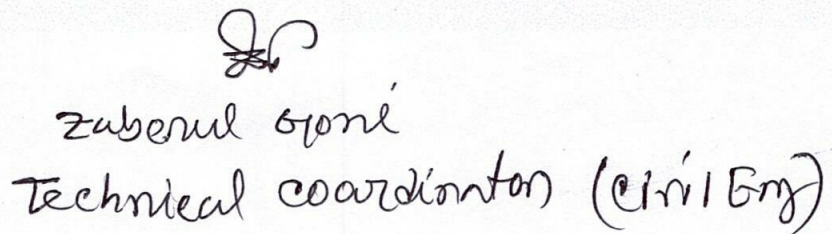 Zuberul Goni
Technical coordinator (Civil Eng)